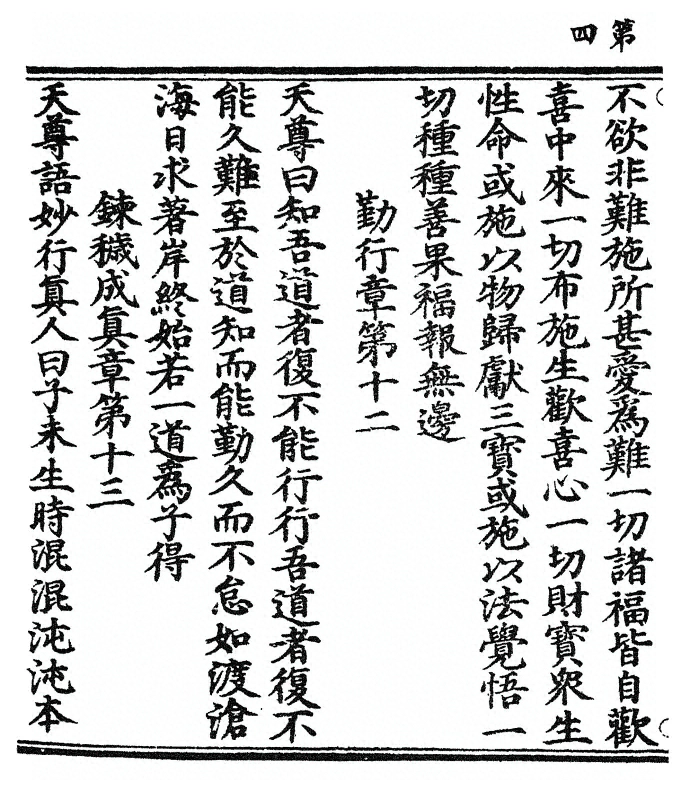 第四
不欲非難施所甚愛爲難一切諸福皆自歡
喜中來一切布施生歡喜心一切財寶衆生
性命或施以物歸獻三寶或施以法覺悟一
切種種善果福報無邊
勤行章第十二
天尊曰知吾道者復不能行行吾道者復不
能久難至於道知而能勤久而不怠如渡滄
海日求著岸終始若一道爲子得
鍊穢成眞章第十三
天尊語妙行眞人曰子未生時混混沌沌本